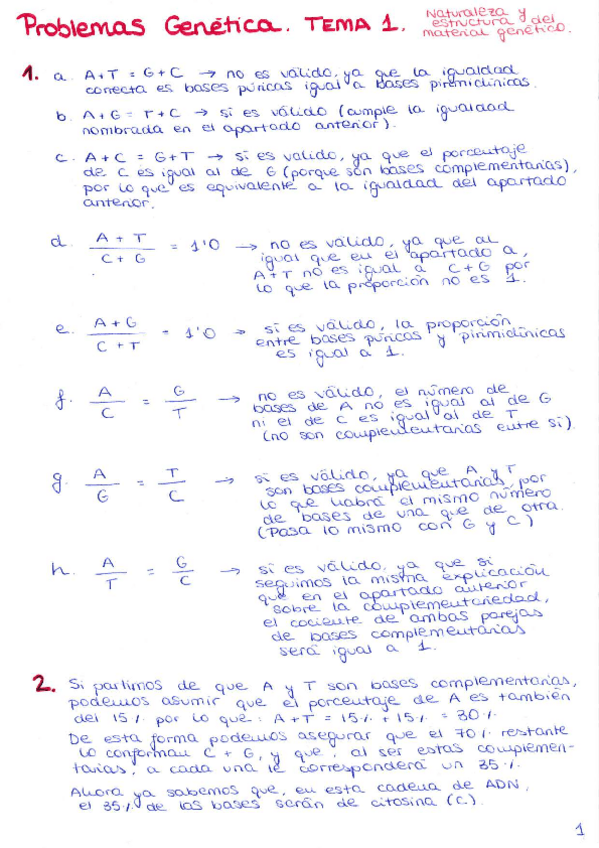 Problemas Genética. TEMA 1. Naturaleza y
estructura del
material genético.
1. a. A+T = G+C → no es válido, ya que la igualdad
correcta es bases púricas igual a bases pirimidínicas.
b. A+G = T+C → si es válido (cumple la igualdad
nombrada en el apartado anterior).
c. A+C = G+T → si es valido, ya que el porcentaje
de C es igual al de G (porque son bases complementarias),
por lo que es equivalente a la igualdad del apartado
anterior.
d. A + T / C + G = 1'0 → no es válido, ya que al
igual que en el apartado a,
A+T no es igual a C+G por
lo que la proporción no es 1.
e. A+G / C+T = 1'0 → si es válido, la proporción
entre bases púricas y pirimidínicas
es igual a 1.
f. A / C = G / T → no es válido, el número de
bases de A no es igual al de G
ni el de C es igual al de T
(no son complementarias entre si)
g. A / G = T / C → si es válido, ya que A y T
son bases complementarias, por
lo que habrá el mismo número
de bases de una que de otra.
(Pasa lo mismo con G y C)
h. A / T = G / C → si es válido, ya que si
seguimos la misma explicación
que en el apartado anterior
sobre la complementariedad,
el cociente de ambas parejas
de bases complementarias
será igual a 1.
2. Si partimos de que A y T son bases complementarias,
podemos asumir que el porcentaje de A es también
del 15% por lo que: A+T = 15% + 15% = 30%
De esta forma podemos asegurar que el 70% restante
lo conforman C + G, y que, al ser estas complemen-
tarias, a cada una le corresponderá un 35%.
Ahora ya sabemos que, en esta cadena de ADN,
el 35% de las bases serán de citosina (C).
1